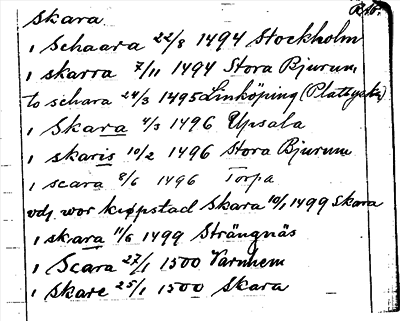 Skara R.A.
i Schaara 22/8 1494 Stockholm
i skarra 7/11 1494 Stora Bjurum
to schara 24/3 1495 Linköping (Plattyska)
i Skara 4/3 1496 Upsala
i skaris 10/2 1496 Stora Bjurum
i scara 8/6 1496 Torpa
vdj wor kiøpstad Skara 10/1 1499 Skara
i skara 11/6 1499 Strängnäs
i Scara 27/1 1500 Varnhem
i Skare 25/1 1500 Skara